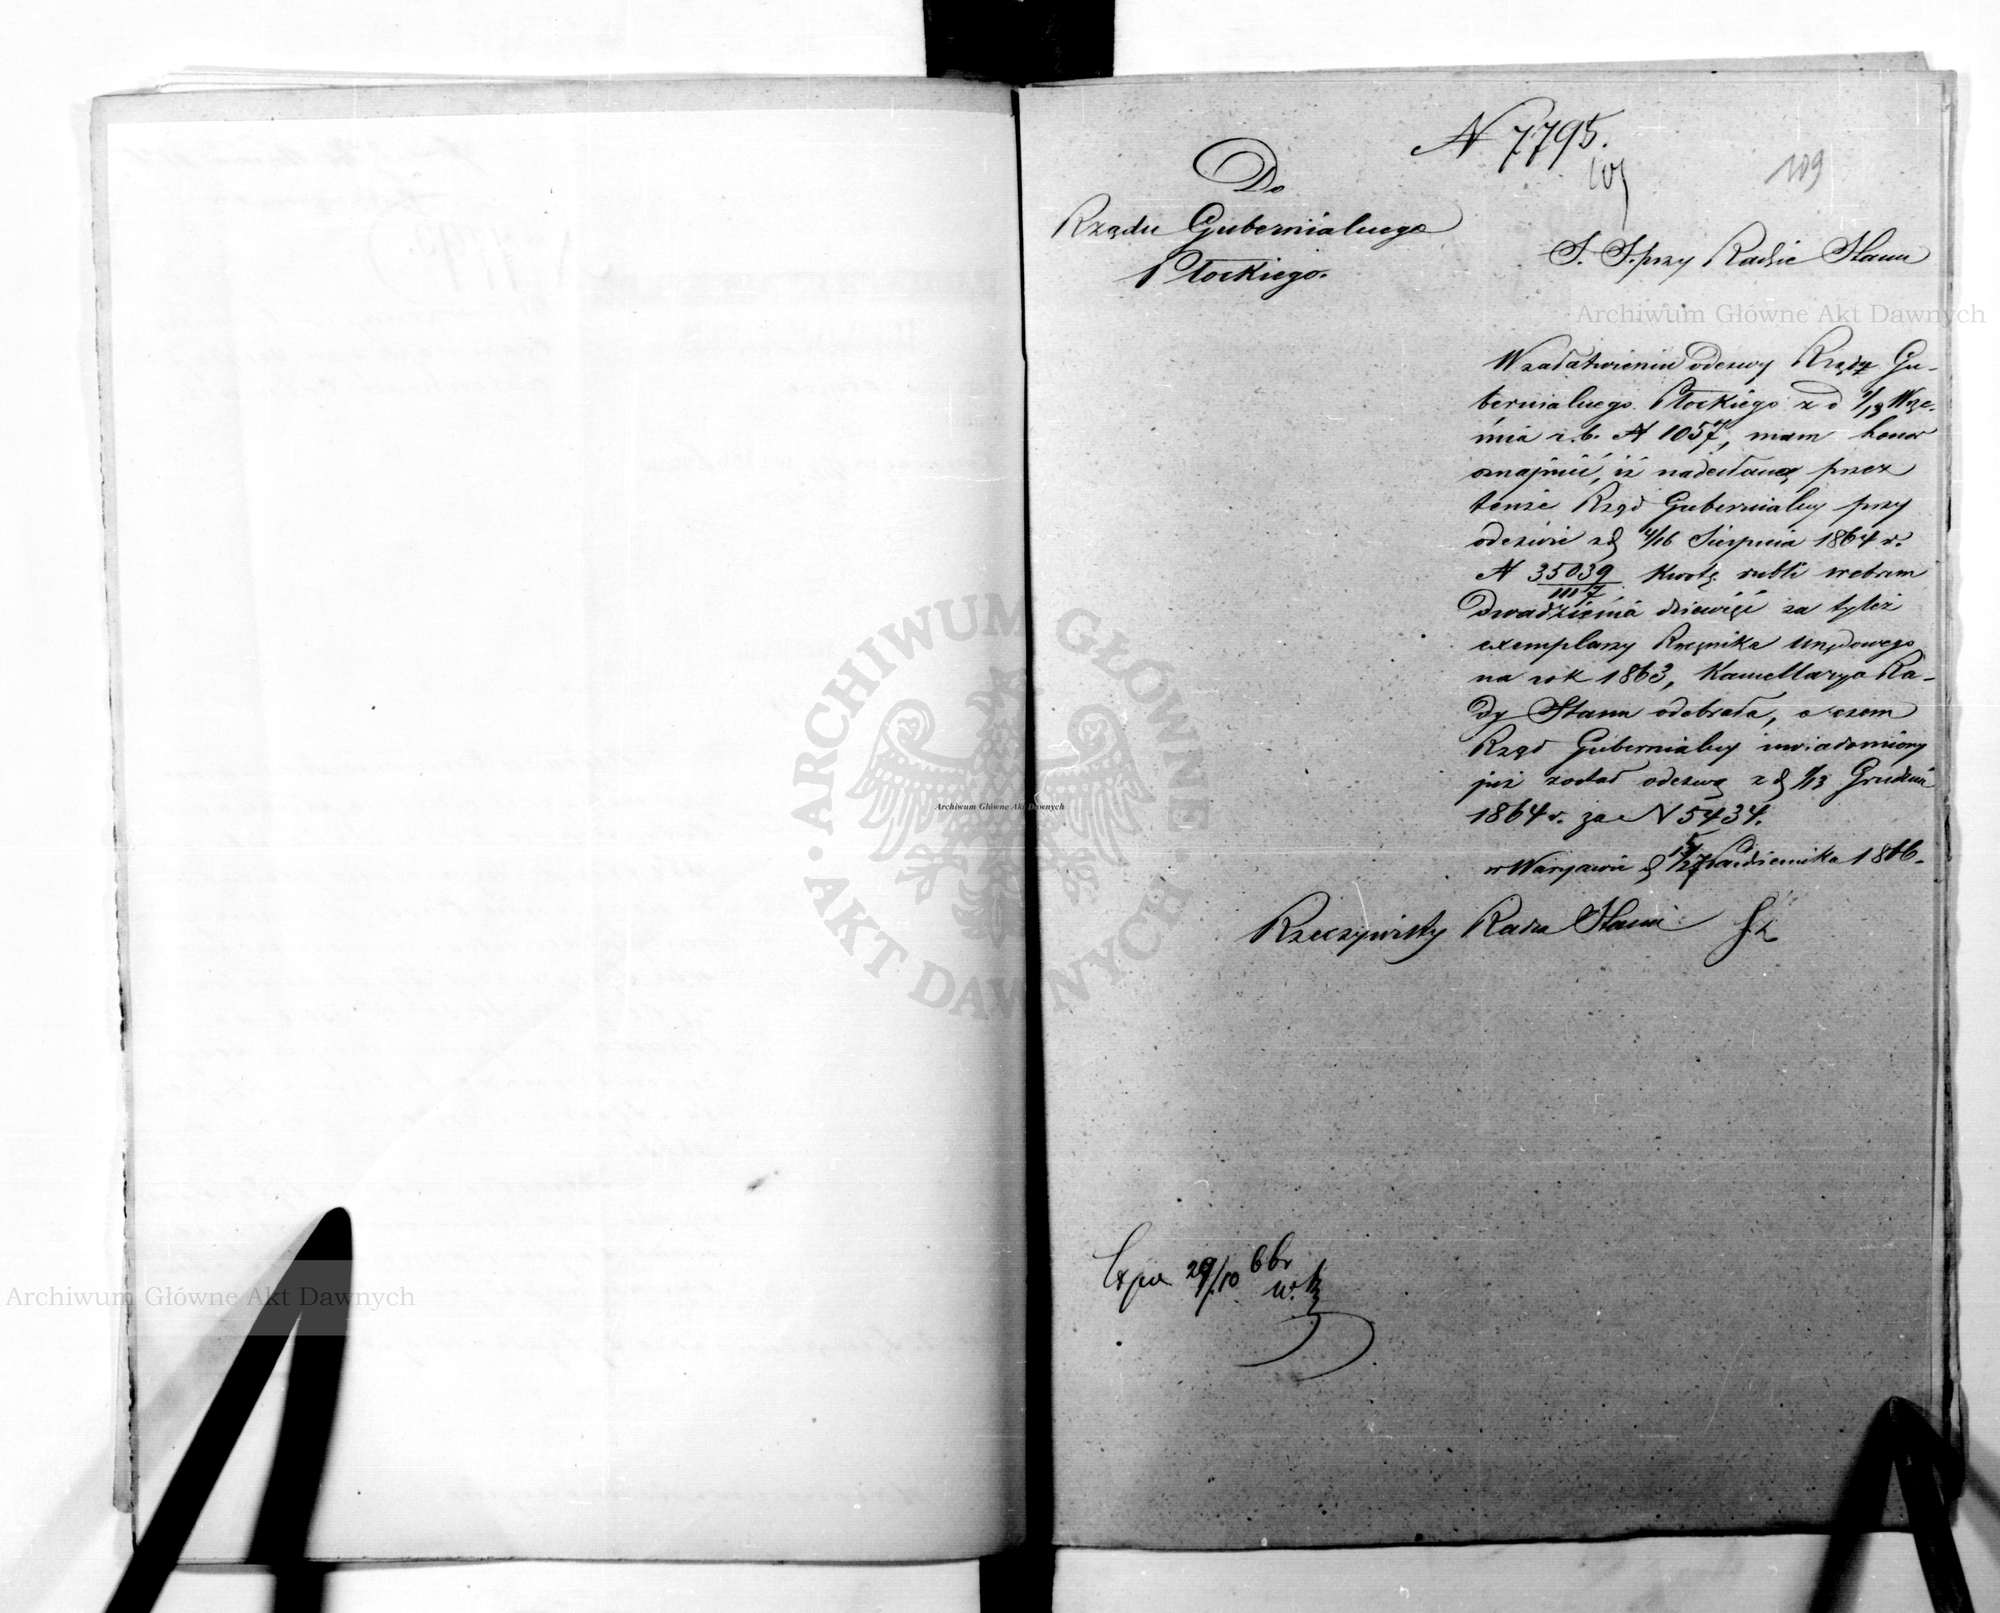 N 7795.
109
Do
Rządu Gubernialnego
Płockiego.
S. S. przy Radzie Stanu
W załatwieniu odezwy Rządu Gu-
bernialnego Płockiego z d 1/13 Wrze-
śnia r. b. N 1057, mam honor
oznajmić, iż nadesłaną przez
tenże Rząd Gubernialny przy
odezwie z d 4/16 Sierpnia 1864 r.
N 35039/1117 kwotę rubli srebrem
dwadzieścia dziewięć za tyleż
exemplarzy Rocznika Urzędowego
na rok 1863, Kancellarya Ra-
dy Stanu odebrała, o czem
Rząd Gubernialny uwiadomiony
już został odezwą z d 1/13 Grudnia
1864 r. za N 5434.
w Warszawie d 15/27 Października 1866.
Rzeczywisty Radca Stanu
Exp. 29/10 66 r
Archiwum Główne Akt Dawnych
Archiwum Główne Akt Dawnych
Archiwum Główne Akt Dawnych
ARCHIWUM GŁÓWNE · AKT DAWNYCH